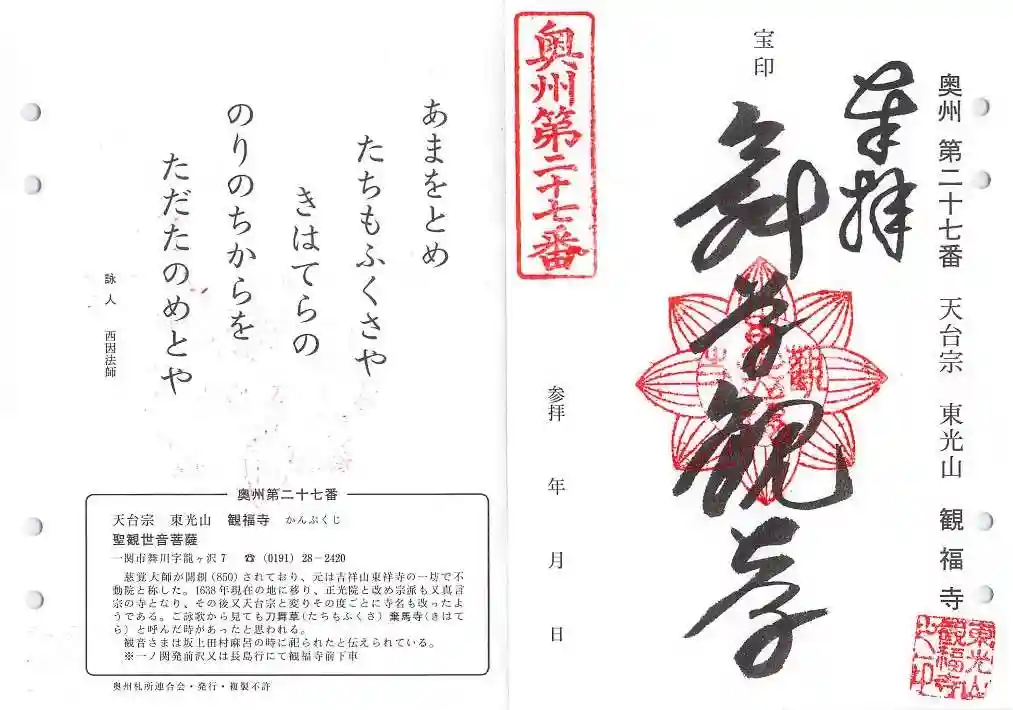 奥州 第二十七番 天台宗 東光山 観福寺
奉拝
宝印
舞草観音
東光山
観福寺
之印
奥州第二十七番
参拝 年 月 日
あまをとめ
たちもふくさや
きはてらの
のりのちからを
ただたのめとや
詠人 西因法師
奥州第二十七番
天台宗 東光山 観福寺 かんぷくじ
聖観世音菩薩
一関市舞川字龍ヶ沢7 ☎(0191)28-2420
慈覚大師が開創(850)されており、元は吉祥山東祥寺の一坊で不
動院と称した。1638年現在の地に移り、正光院と改め宗派も又真言
宗の寺となり、その後又天台宗と変りその度ごとに寺名も改ったよ
うである。ご詠歌から見ても刀舞草(たちもふくさ)棄馬寺(きはて
ら)と呼んだ時があったと思われる。
観音さまは坂上田村麻呂の時に祀られたと伝えられている。
※一ノ関発前沢又は長島行にて観福寺前下車
奥州札所連合会・発行・複製不許